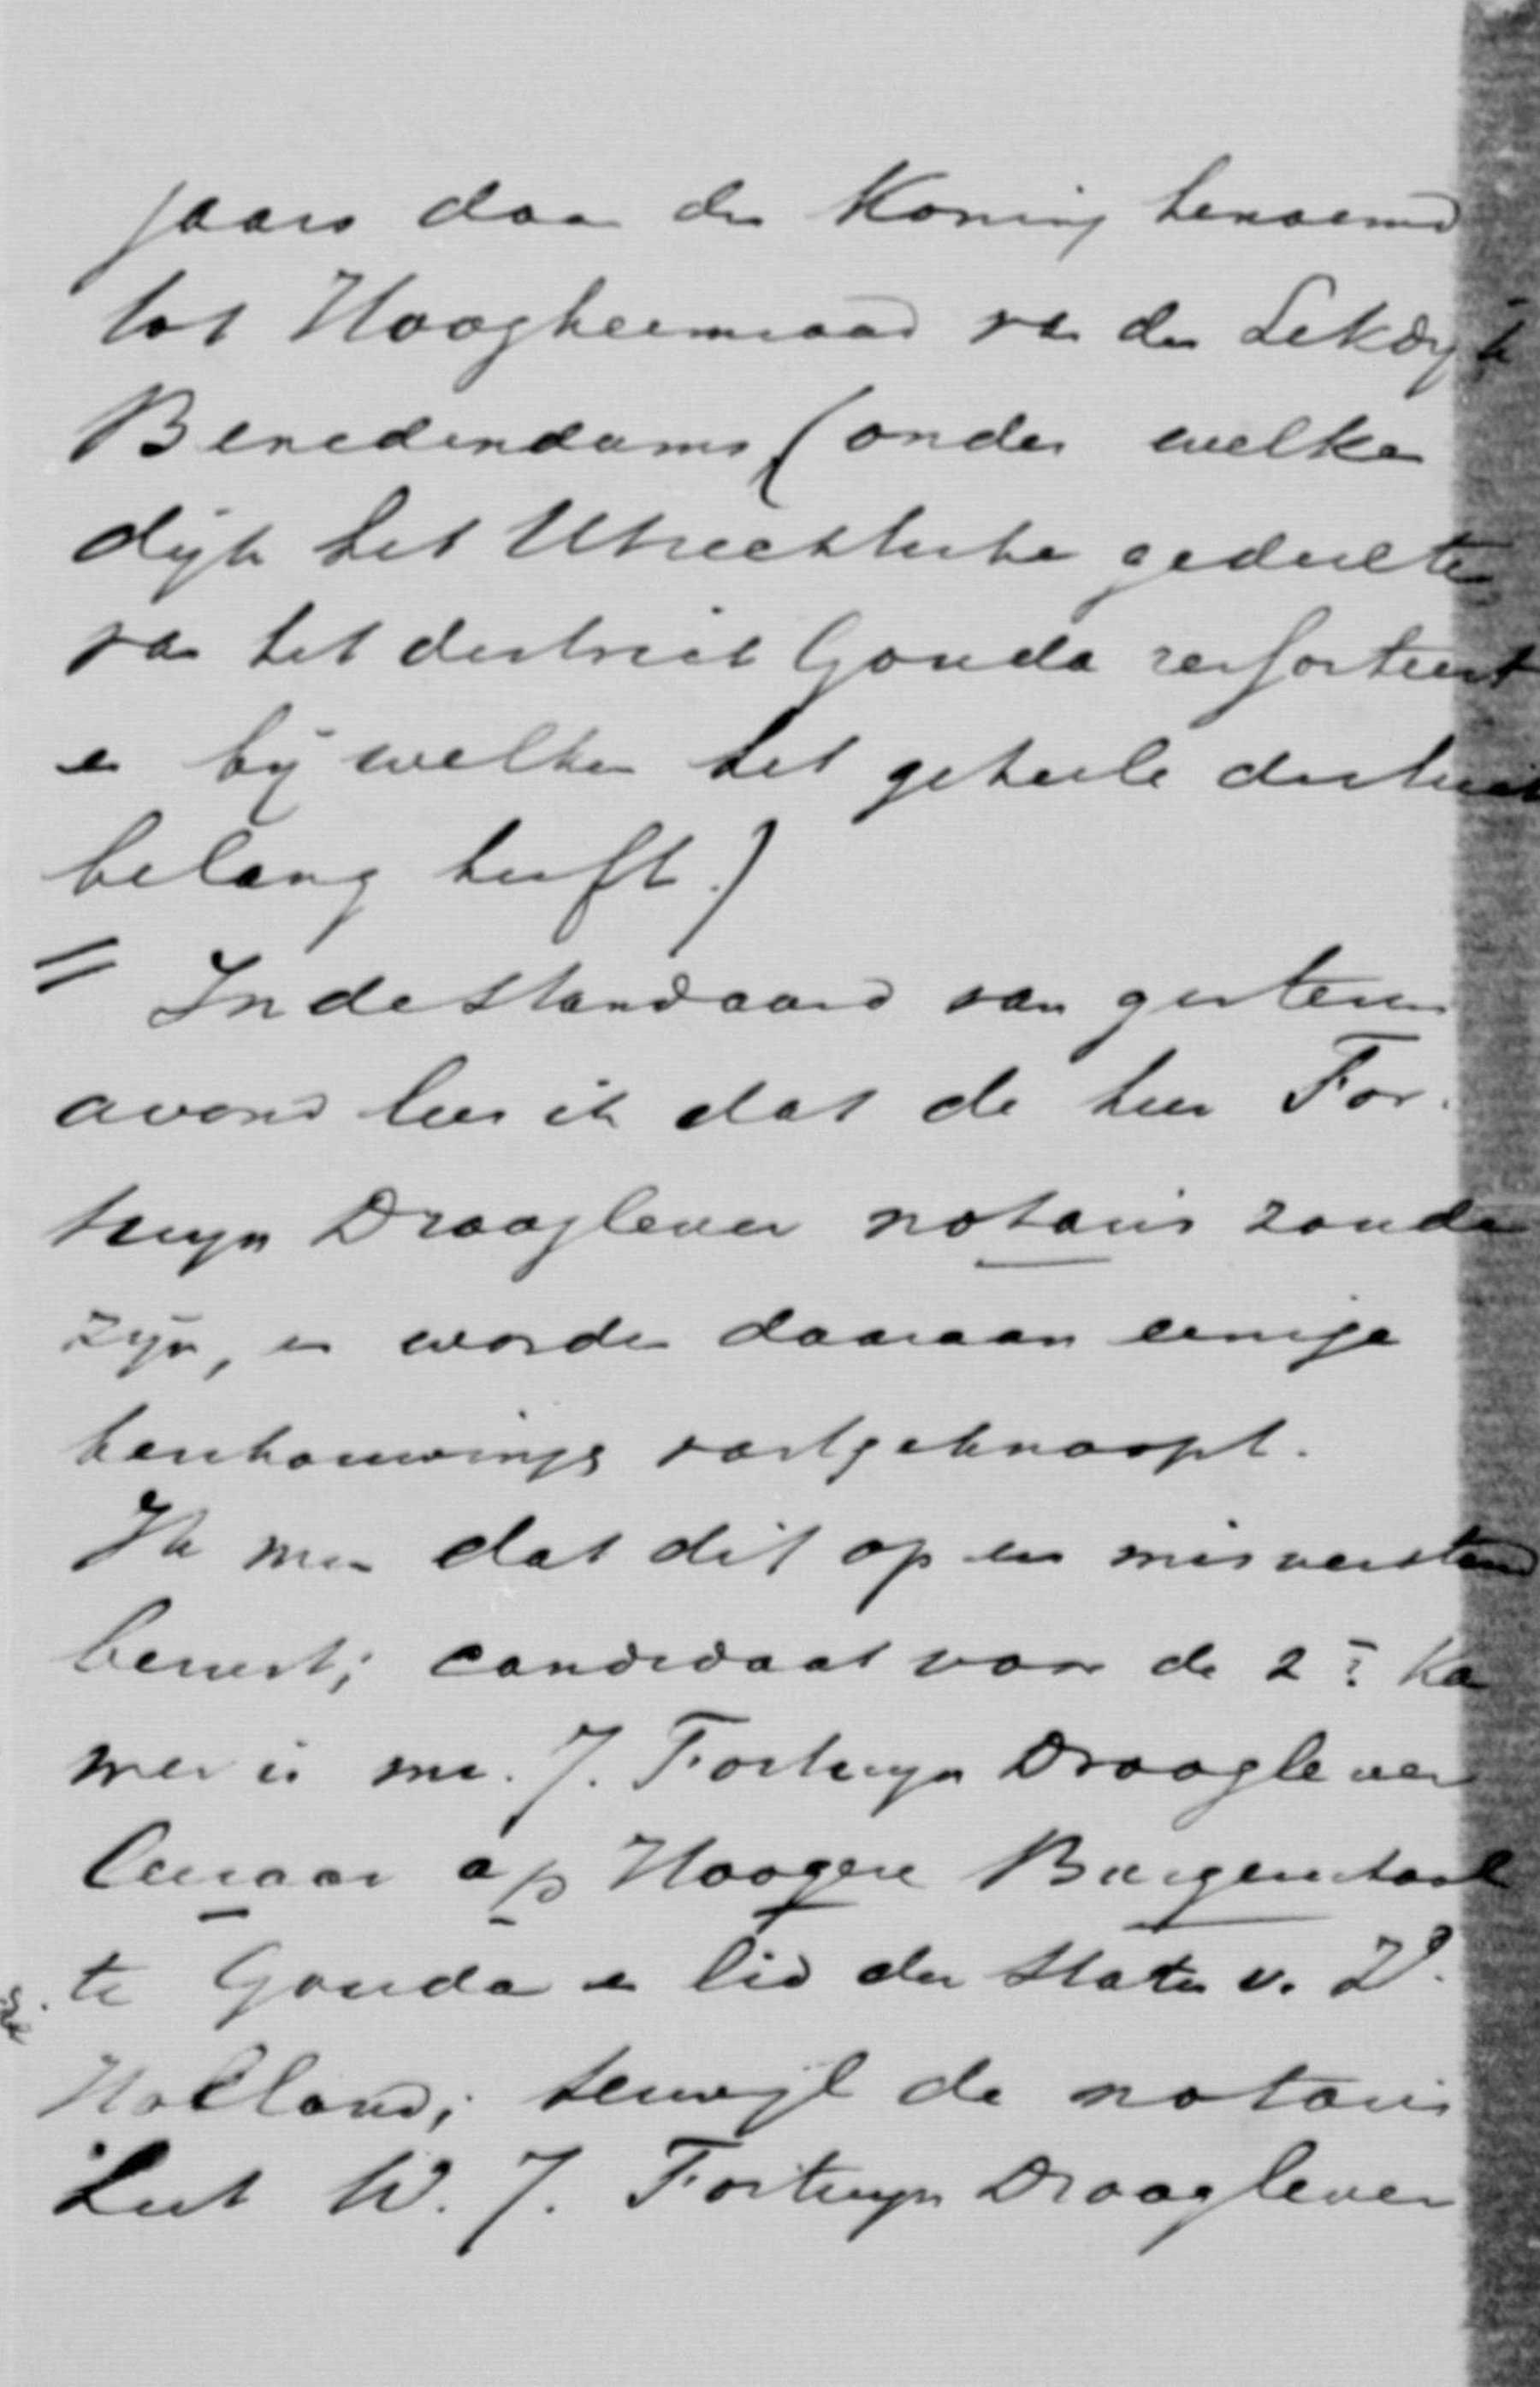 jaars door den Koning benoemd
tot Hoogheemraad van den Lekdyk
Benedendams (onder welken
dijk het Utrechtsche gedeelte
van het district Gouda ressorteert
en bij welken het geheele district
belang heeft.)
= In de Standaard van gisteren
avond lees ik dat de heer For-
tuyn Drooglever notaris zoude
zijn, en worden daaraan eenige
beschouwings vastgeknoopt.
Ik meen dat dit op een misverstand
berust; candidaat voor de 2e Ka
mer is mr. J. Fortuyn Drooglever
leeraar op Hoogere Burgerschool
te Gouda en lid der Staten v. Z.
Holland; terwijl de notaris
heet W. J. Fortuyn Drooglever